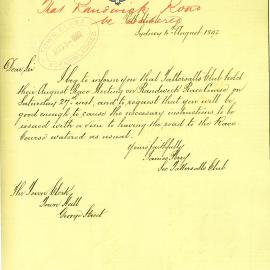 That Randwick Road
be Watered
Sydney 4 August 1892
Dear Sir
I beg to inform you that Tattersalls Club hold
their August Race Meeting on Randwick Racecourse on
Saturday 27th inst, and to request that you will be
good enough to cause the necessary instructions to be
issued with a view to having the road to the Race
Course watered as usual.
Yours faithfully
James Perry
Sec Tattersalls Club
The Town Clerk,
Town Hall
George Street